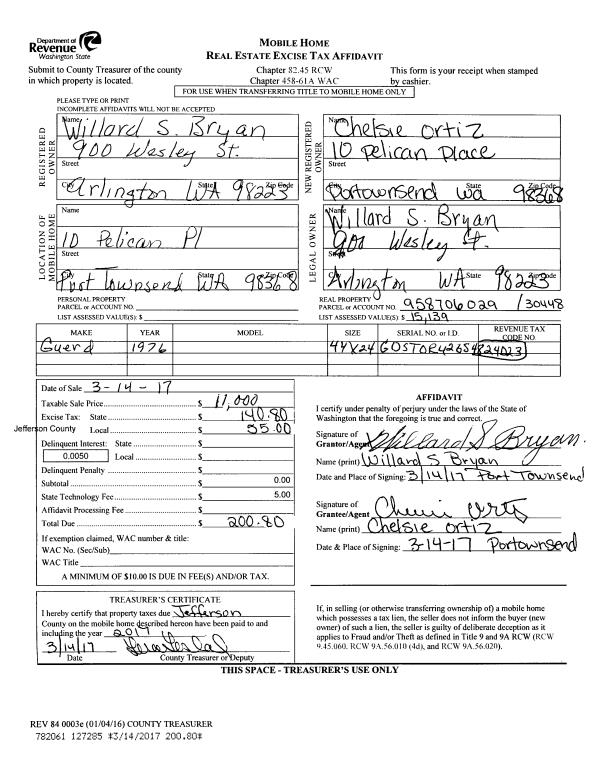 Department of
Revenue
Washington State
MOBILE HOME
REAL ESTATE EXCISE TAX AFFIDAVIT
Submit to County Treasurer of the county
in which property is located.
Chapter 82.45 RCW
Chapter 458-61A WAC
This form is your receipt when stamped
by cashier.
FOR USE WHEN TRANSFERRING TITLE TO MOBILE HOME ONLY
PLEASE TYPE OR PRINT
INCOMPLETE AFFIDAVITS WILL NOT BE ACCEPTED
REGISTERED OWNER
Name
Willard S. Bryan
900 Wesley St.
Street
City State Zip Code
Arlington WA 98223
NEW REGISTERED OWNER
Name
Chelsie Ortiz
10 Pelican Place
Street
City State Zip Code
Portownsend Wa 98368
LOCATION OF MOBILE HOME
Name
10 Pelican Pl
Street
City State Zip Code
Port Townsend WA 98368
LEGAL OWNER
Name
Willard S. Bryan
900 Wesley St.
Street
City State Zip Code
Arlington WA 98223
PERSONAL PROPERTY
PARCEL or ACCOUNT NO.
LIST ASSESSED VALUE(S): $
REAL PROPERTY
PARCEL or ACCOUNT NO. 958706029 /30448
LIST ASSESSED VALUE(S) $ 15,139
MAKE YEAR MODEL SIZE SERIAL NO. or I.D. REVENUE TAX CODE NO.
Guerd 1976 44X24 GOSTOR42654824023
Date of Sale 3-14-17
Taxable Sale Price $ 11,000
Excise Tax: State $ 140.80
Jefferson County Local $ 55.00
Delinquent Interest: State $
0.0050 Local $
Delinquent Penalty $
Subtotal $ 0.00
State Technology Fee $ 5.00
Affidavit Processing Fee $
Total Due $ 200.80
If exemption claimed, WAC number & title:
WAC No. (Sec/Sub)
WAC Title
A MINIMUM OF $10.00 IS DUE IN FEE(S) AND/OR TAX.
AFFIDAVIT
I certify under penalty of perjury under the laws of the State of
Washington that the foregoing is true and correct.
Signature of
Grantor/Agent Willard S Bryan
Name (print) Willard S Bryan
Date and Place of Signing: 3/14/17 Port Townsend
Signature of
Grantee/Agent
Name (print) Chelsie Ortiz
Date & Place of Signing: 3-14-17 Portownsend
TREASURER'S CERTIFICATE
I hereby certify that property taxes due Jefferson
County on the mobile home described hereon have been paid to and
including the year 2017
3/14/17
Date County Treasurer or Deputy
If, in selling (or otherwise transferring ownership of) a mobile home
which possesses a tax lien, the seller does not inform the buyer (new
owner) of such a lien, the seller is guilty of deliberate deception as it
applies to Fraud and/or Theft as defined in Title 9 and 9A RCW (RCW
9.45.060. RCW 9A.56.010 (4d), and RCW 9A.56.020).
THIS SPACE - TREASURER'S USE ONLY
REV 84 0003e (01/04/16) COUNTY TREASURER
782061 127285 *3/14/2017 200.80*